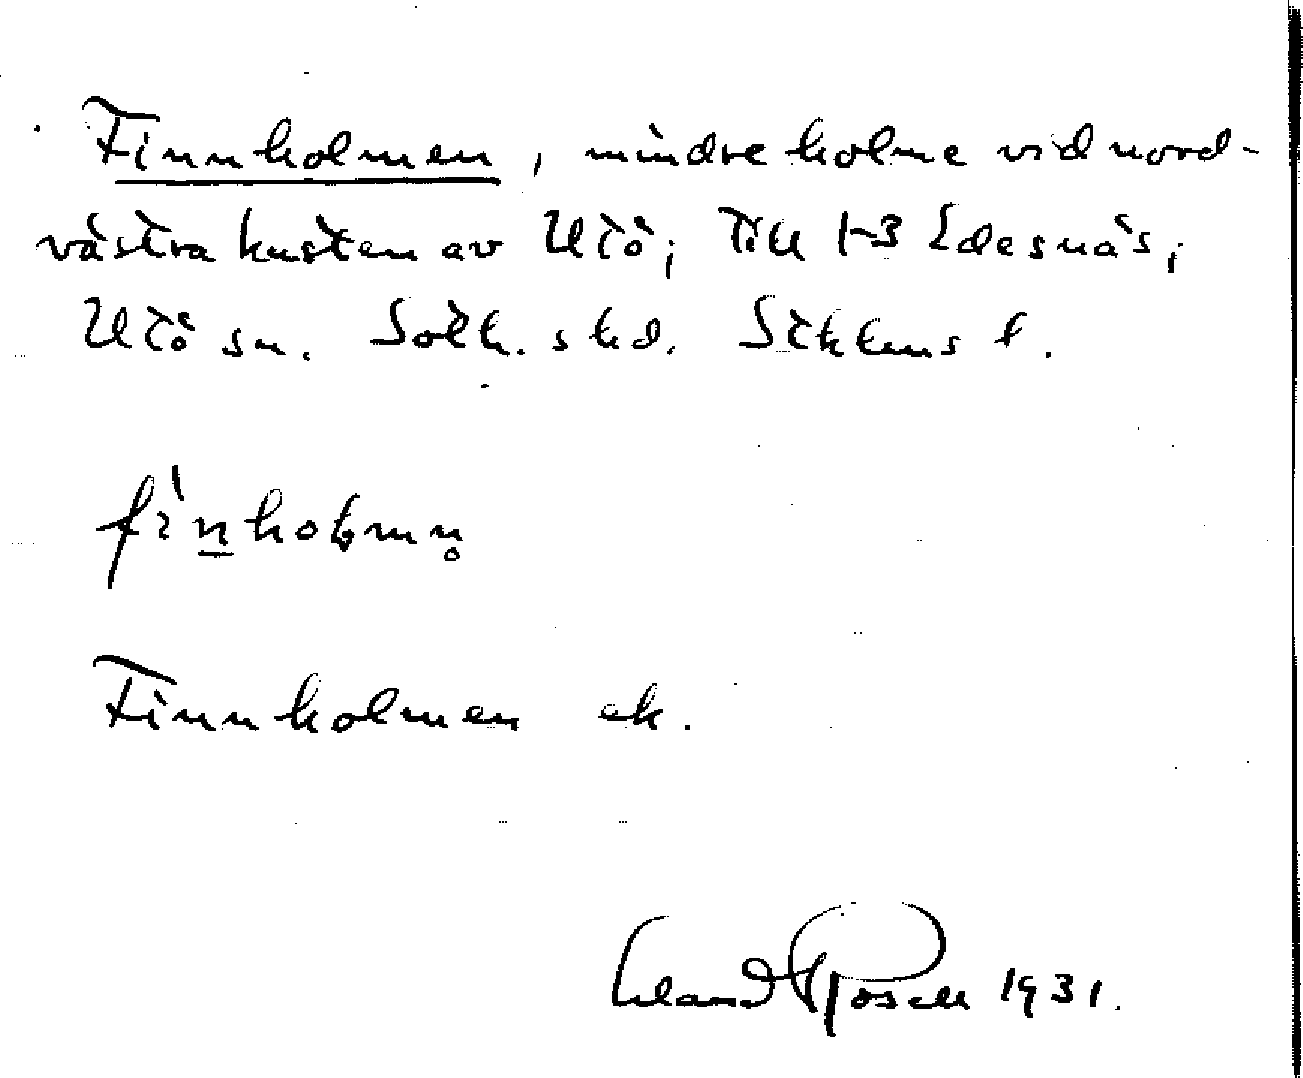 Finnholmen, mindre holme vid nord-
västra kusten av Utö; Till 1-3 Edesnäs,
Utö sn. Sotk. skd. Sthlms l.
fìn̲holmn̥
Finnholmen ek.
Erland Rosell 1931.